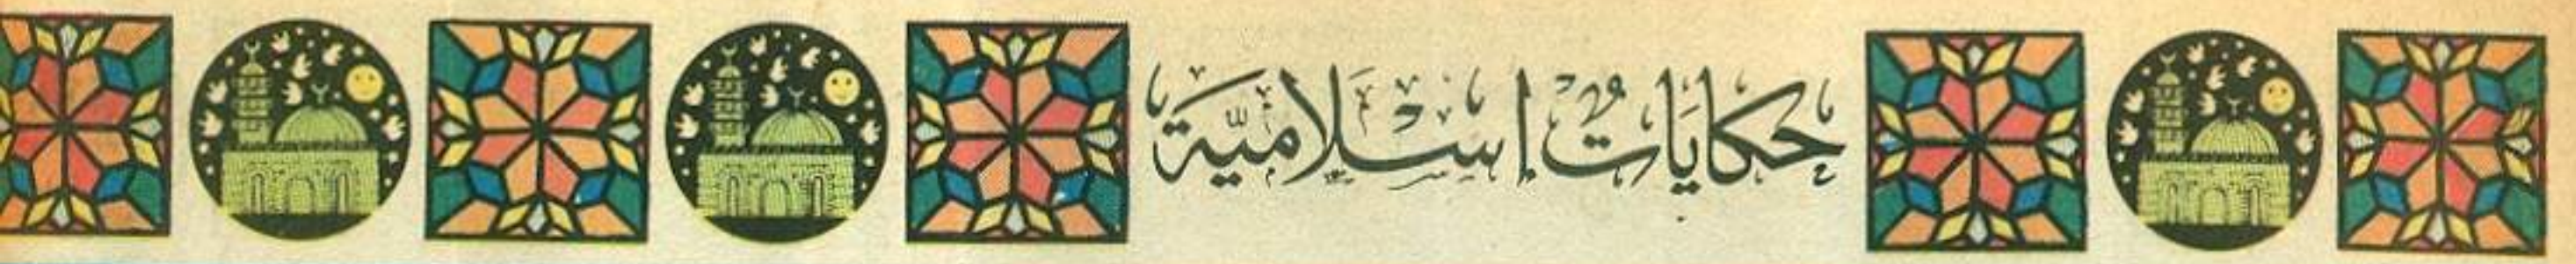 حكايات إسلامية